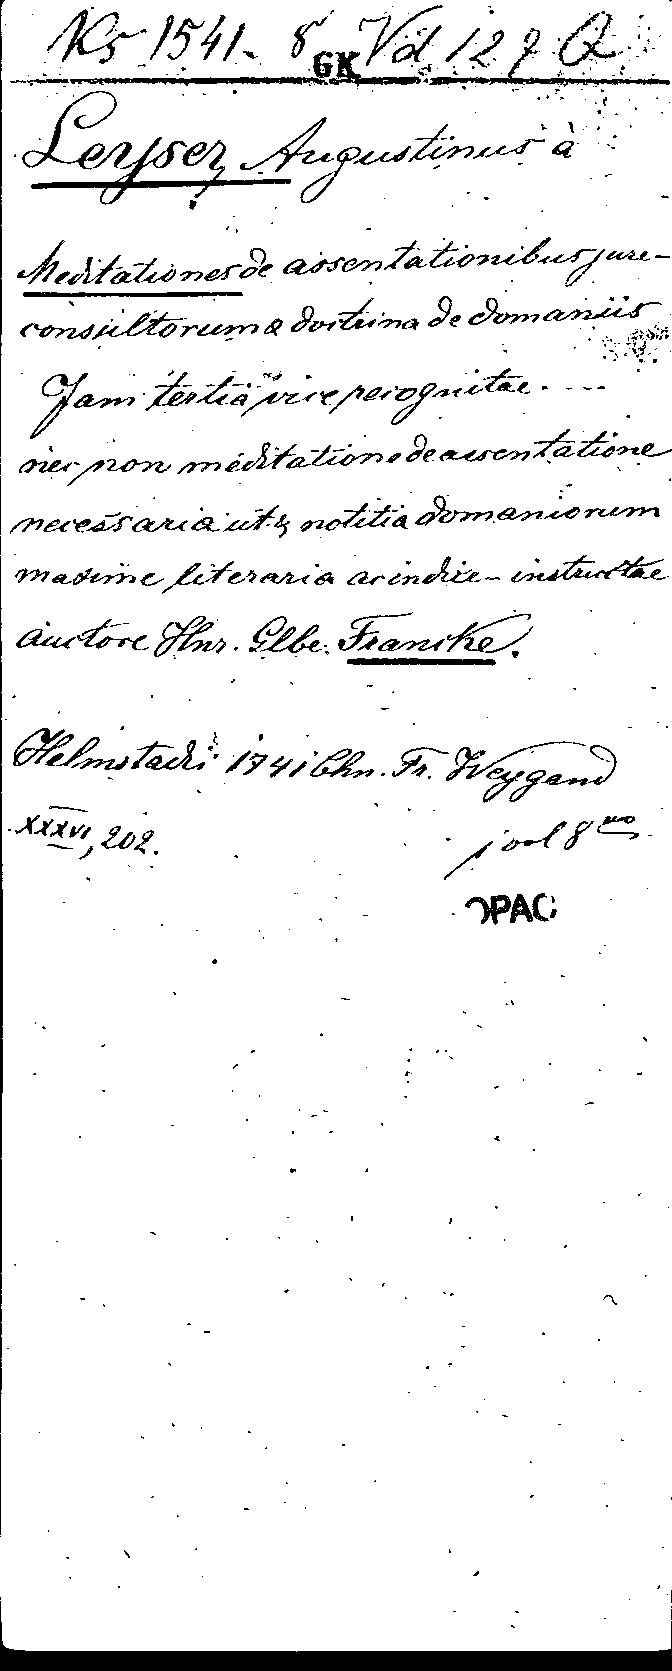 Ks 1541. 8 Vd 127 Q
GK
Leyser, Augustinus à
Meditationes de assentationibus jure-
consultorum & doctrina de domaniis
Jam tertiâ vice recognitae....
nec non meditatione de assentatione
necessaria ut & notitia domaniorum
maxime literaria ac indice - instructae
auctore Hnr. Glbe. Francke.
Helmstadii 1741 Chn. Fr. Weygand
XXXVI, 202.
j vol 8vo
OPAC